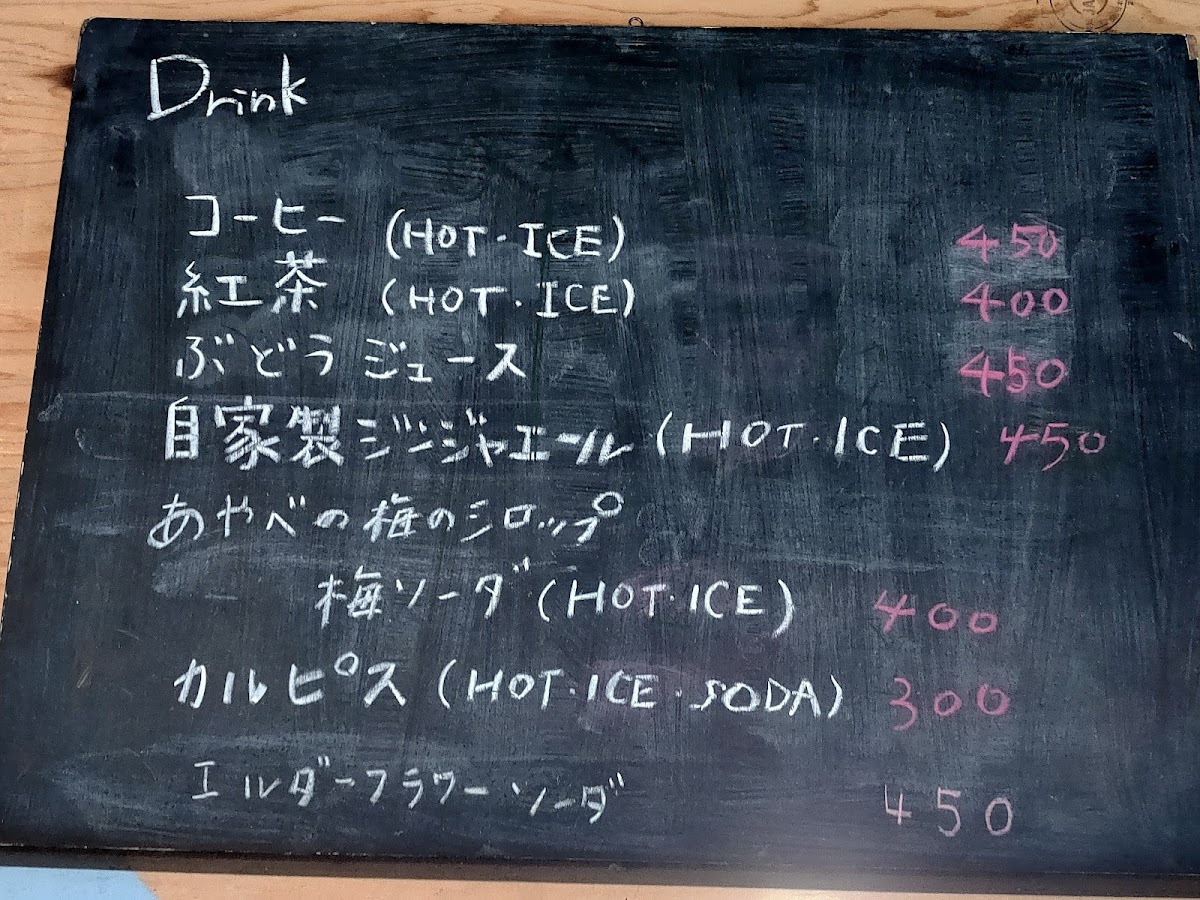 Drink
コーヒー (HOT・ICE) 450
紅茶 (HOT・ICE) 400
ぶどうジュース 450
自家製ジンジャエール (HOT・ICE) 450
あやべの梅のシロップ
梅ソーダ (HOT・ICE) 400
カルピス (HOT・ICE・SODA) 300
エルダーフラワーソーダ 450